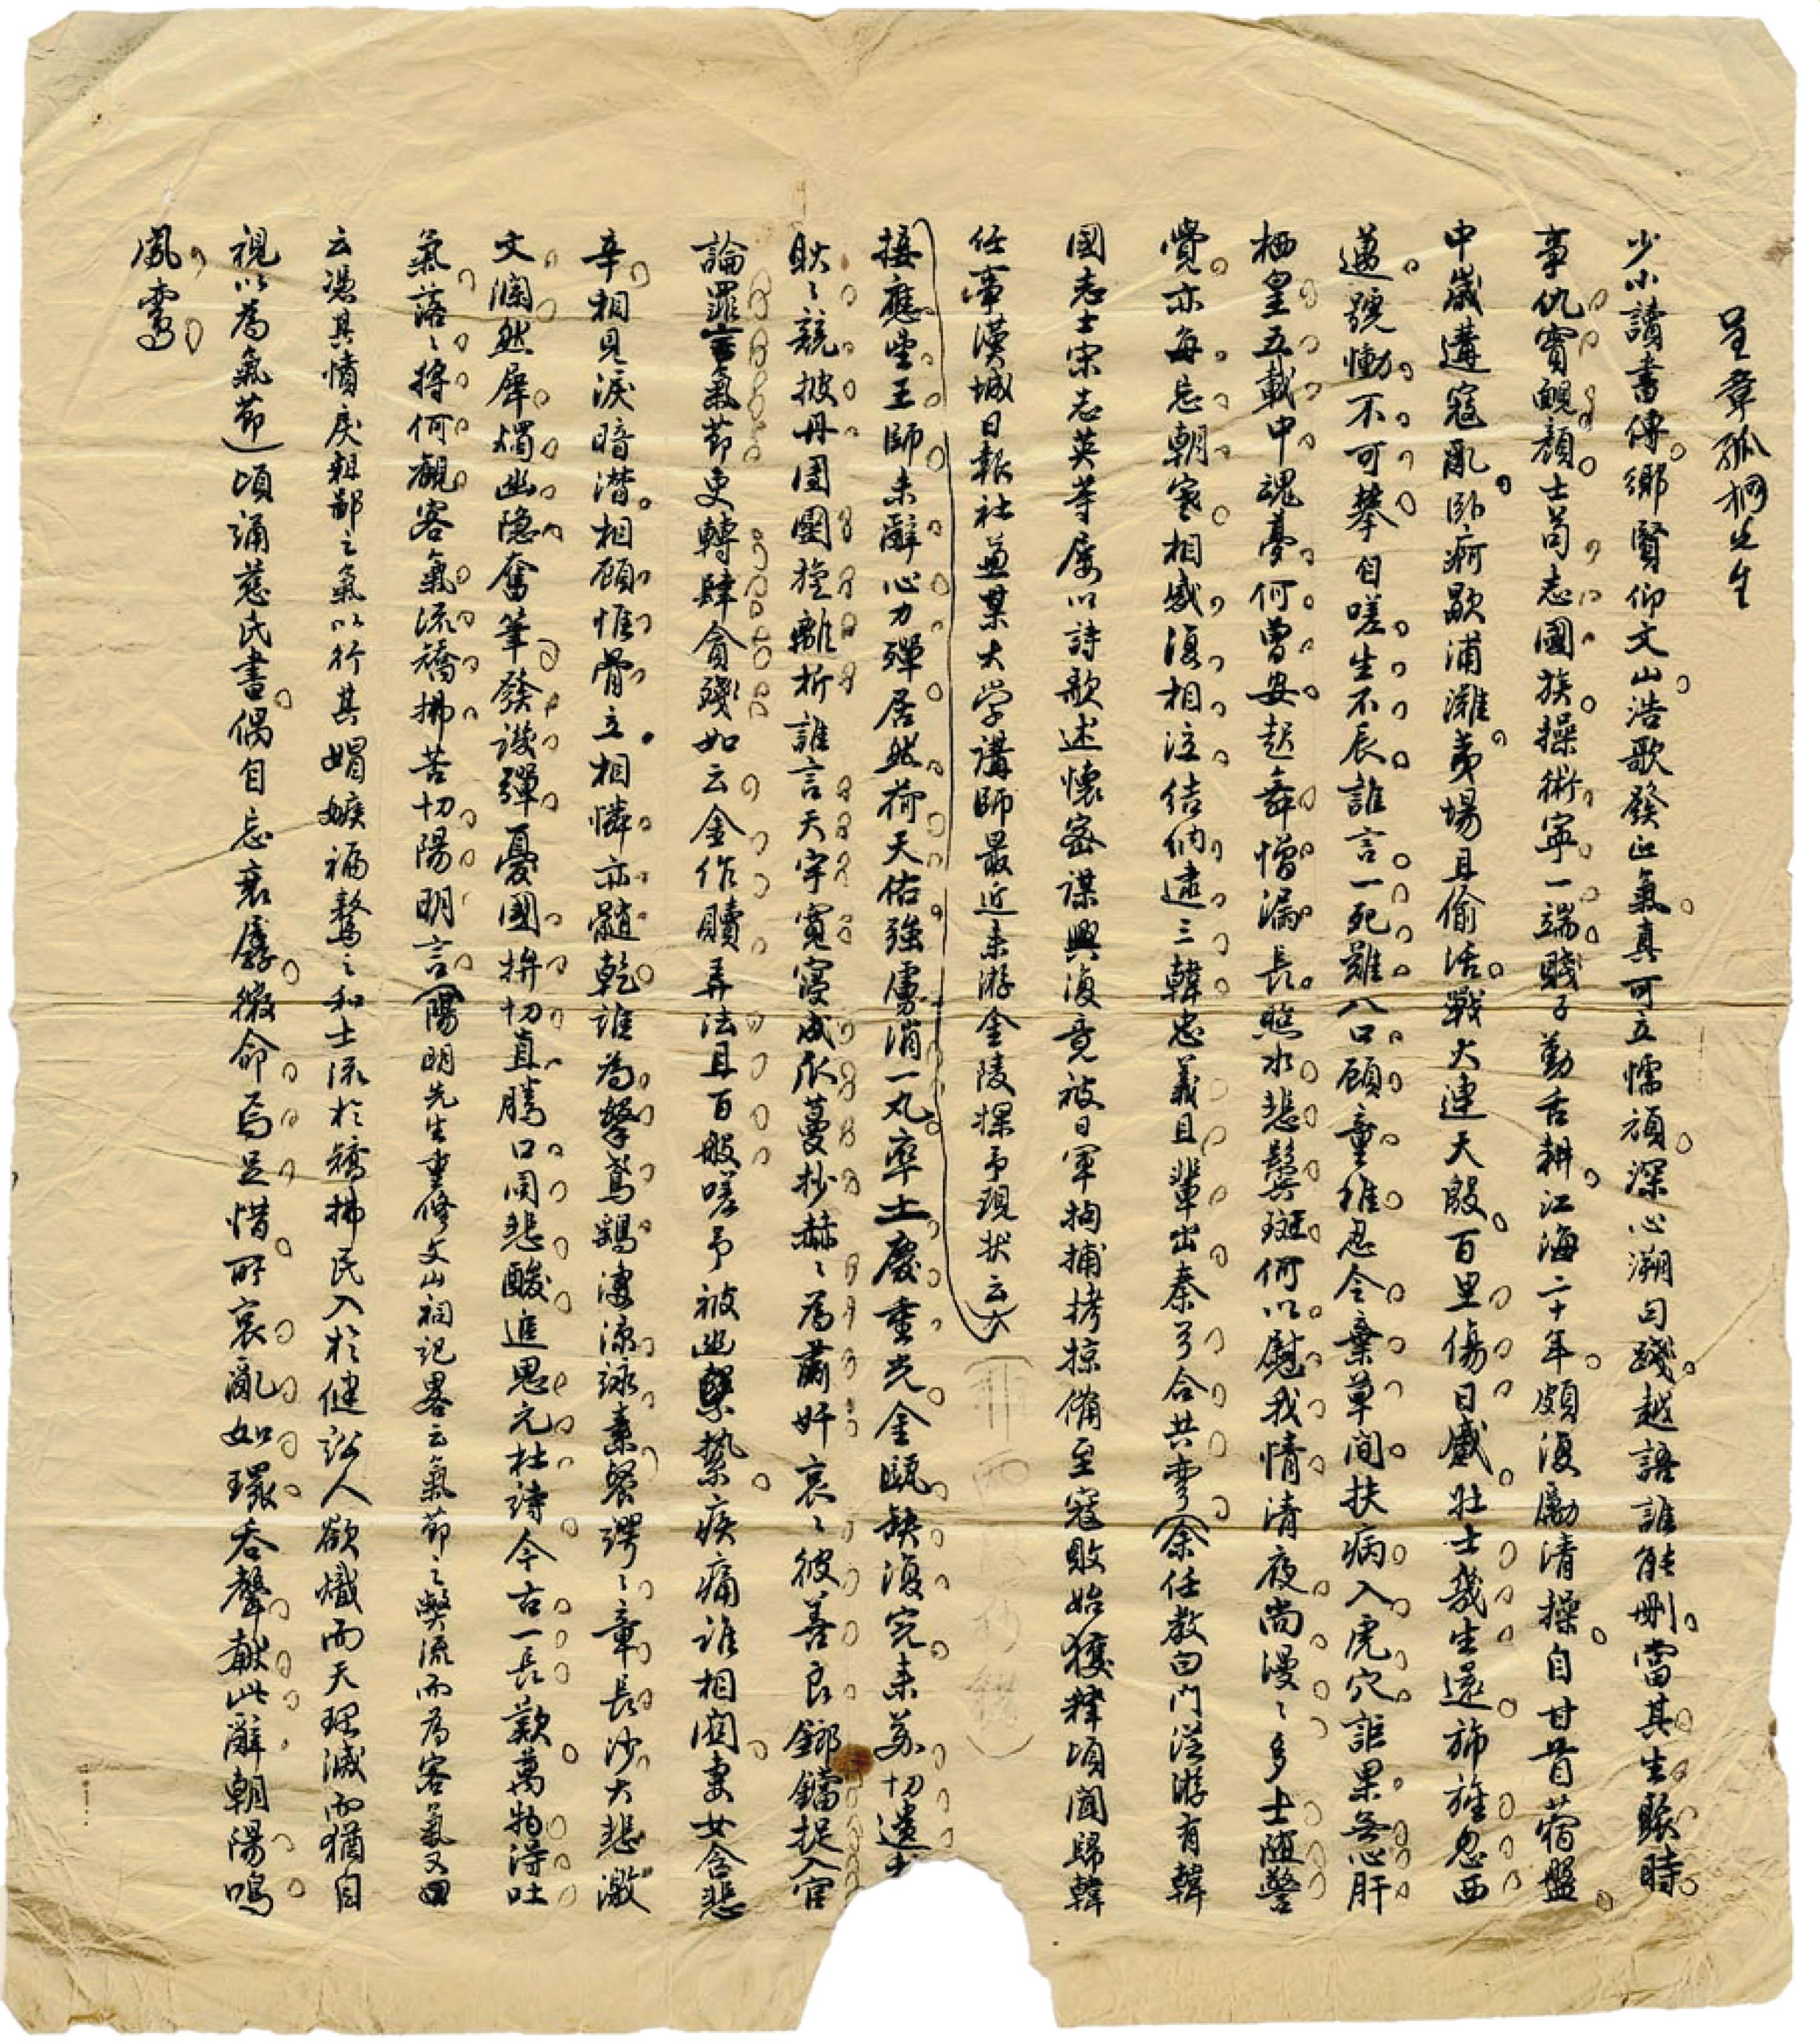 呈章孤桐先生
少小讀書傳鄉賢仰文山浩歌發正氣真可立懦頑深心溯句踐越語誰能刪當其生聚時
事仇實靦顏士苟志國族操術寧一端賤子勤舌耕江海二十年頗復勵清操自甘苜蓿盤
中歲遘寇亂臥痾歇浦灘夢場且偷活戰火連天殷百里傷日蹙壯士幾生還旆旌忽西
邁號慟不可攀自嗟生不辰誰言一死難八口顧童稚忍令棄草間扶病入虎穴詎果無心肝
栖皇五載中魂夢何曾安起舞憎漏長照水悲鬢斑何以慰我情清夜尚漫漫多士隨警
覺亦每忘朝寒相感復相泣結納逮三韓忠義且輩出秦弓合共彎（余任教白門從游有韓
國志士宋志英等屢以詩歌述懷密謀興復竟被日軍拘捕拷掠備至寇敗始獲釋頃聞歸韓
任事漢城日報社兼某大学講師最近来游金陵探予現狀云）
接應些王師未辭心力殫居然荷天佑強虜消一丸率土慶重光金甌缺復完来蘇切遺
眈眈競披丹團圞旋離析誰言天宇寬寖成瓜蔓抄赫赫為肅奸哀哀彼善良鋃鐺捉入官
論罪言氣節更轉肆貪殘如云金作贖弄法且百般嗟予被幽縶疾痛誰相關妻女含悲
辛相見淚暗潸相顧惟骨立相憐亦髓乾誰為拏鴛鷄淒涼詠素餐諤諤章長沙大悲激
文瀾然犀燭幽隱奮筆發譏彈憂國拚切直騰口同悲酸追思元杜詩今古一長歎萬物得吐
氣落落將何觀客氣流矯拂苦切陽明言（陽明先生重修文山祠記畧云氣節之弊流而為客氣又曰
云憑其憤戾粗鄙之氣以行其媢嫉褊騖之和士流於矯拂民入於健訟人欲熾而天理滅而猶自
視以為氣節）頃誦慈氏書偶自忘衰孱微命焉足惜所哀亂如環吞聲獻此辭朝陽鳴
鳳鸞